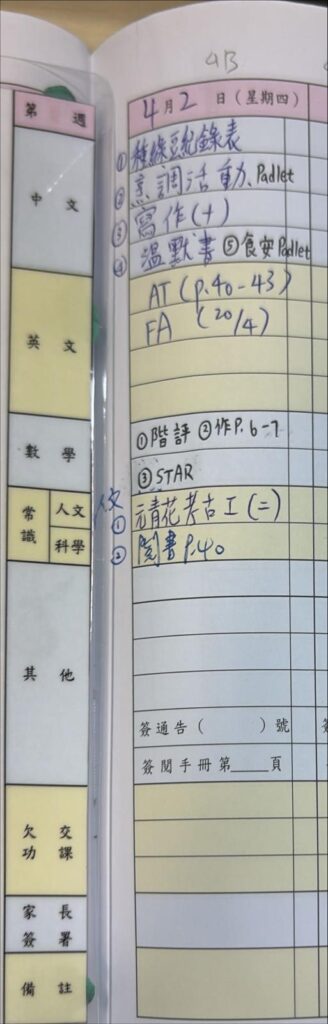 4B
第 週
4月2日(星期四)
中文
① 種綠豆紀錄表
② 烹調活動、Padlet
③ 寫作(十)
④ 溫默書 ⑤食安Padlet
英文
AT (p.40-43)
FA (20/4)
數學
①階評 ②作P.6-7
③STAR
常識
人文
人文
① 元青花考古工(二)
科學
② 閱書 P.40
其他
簽通告( )號
簽閱手冊第____頁
欠交功課
家長簽署
備註